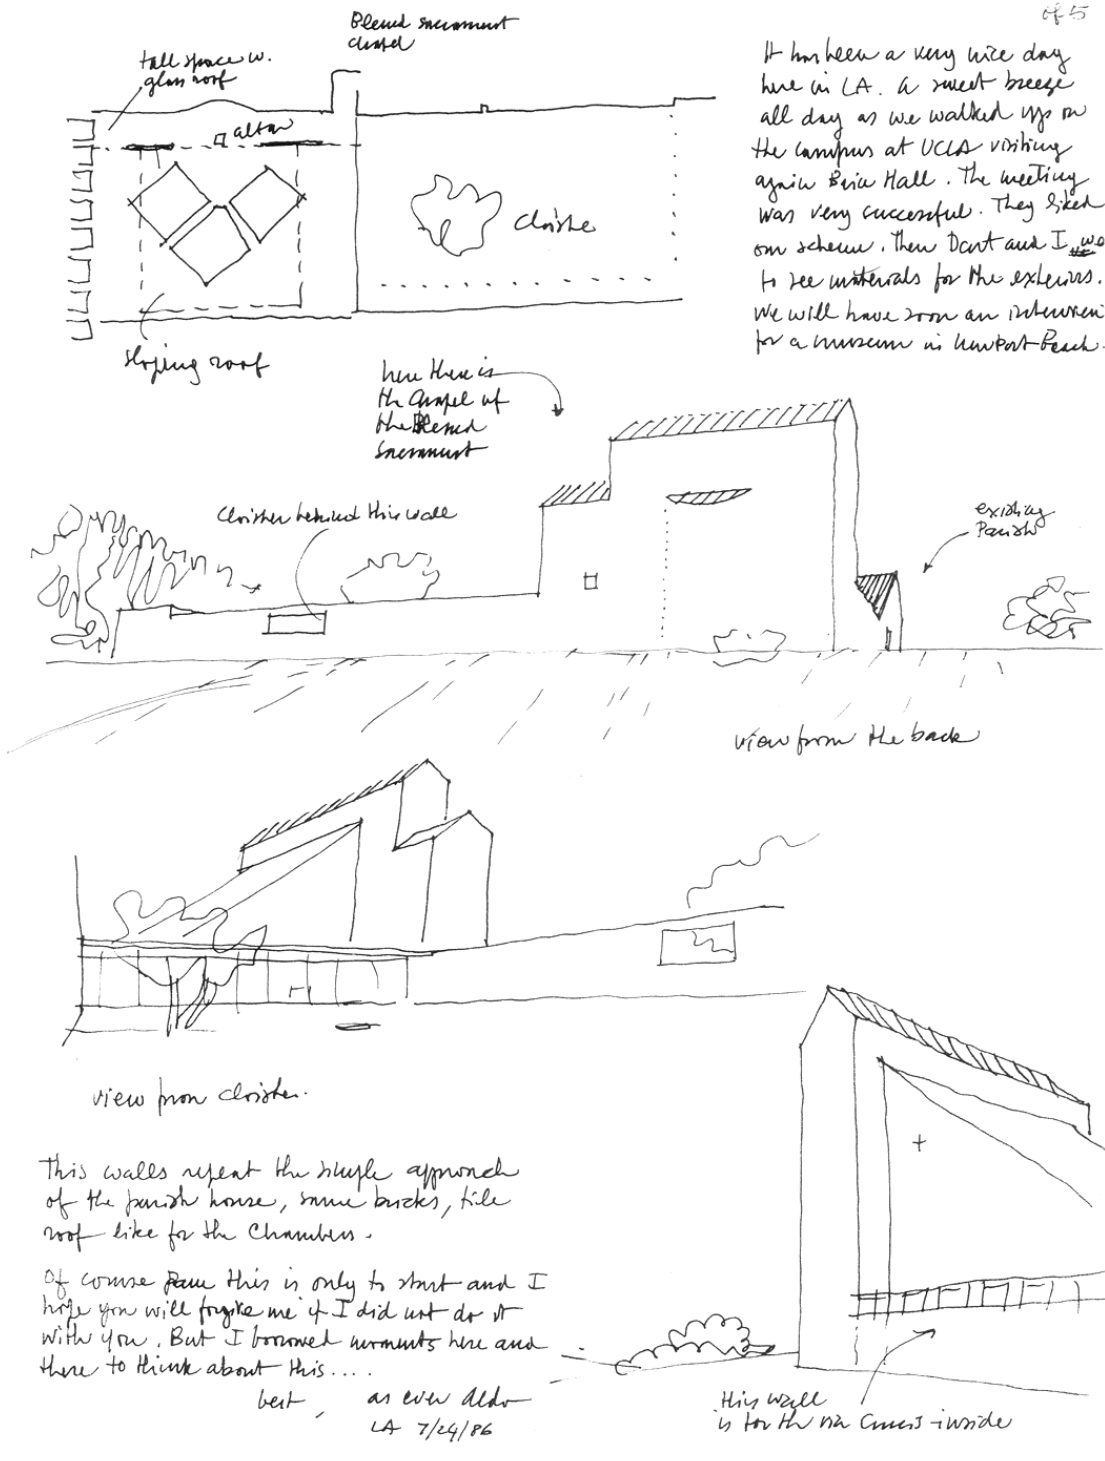 of 5
Blessed sacrament
chapel
tall space w.
glass roof
altar
Cloister
sloping roof
It has been a very nice day
here in LA. A sweet breeze
all day as we walked up on
the campus at UCLA visiting
again Hall. The meeting
was very successful. They liked
our scheme. Then and I we
to see materials for the exteriors.
We will have soon an interview
for a museum in Newport Beach.
here there is
the Chapel of
the Blessed
Sacrament
Cloister behind this wall
existing
Parish
view from the back
view from Cloister.
This walls repeat the simple approach
of the parish house, same bricks, tile
roof like for the Chambers.
Of course this is only to start and I
hope you will forgive me if I did not do it
with you. But I borrowed moments here and
there to think about this....
best, as ever Aldo
LA 7/24/86
this wall
is for the via Crucis inside